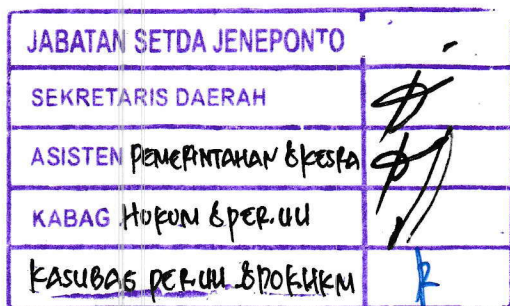 JABATAN SETDA JENEPONTO
SEKRETARIS DAERAH
ASISTEN PEMERINTAHAN & KESRA
KABAG HUKUM & PER.UU
KASUBAG PER.UU & DOK.HKM